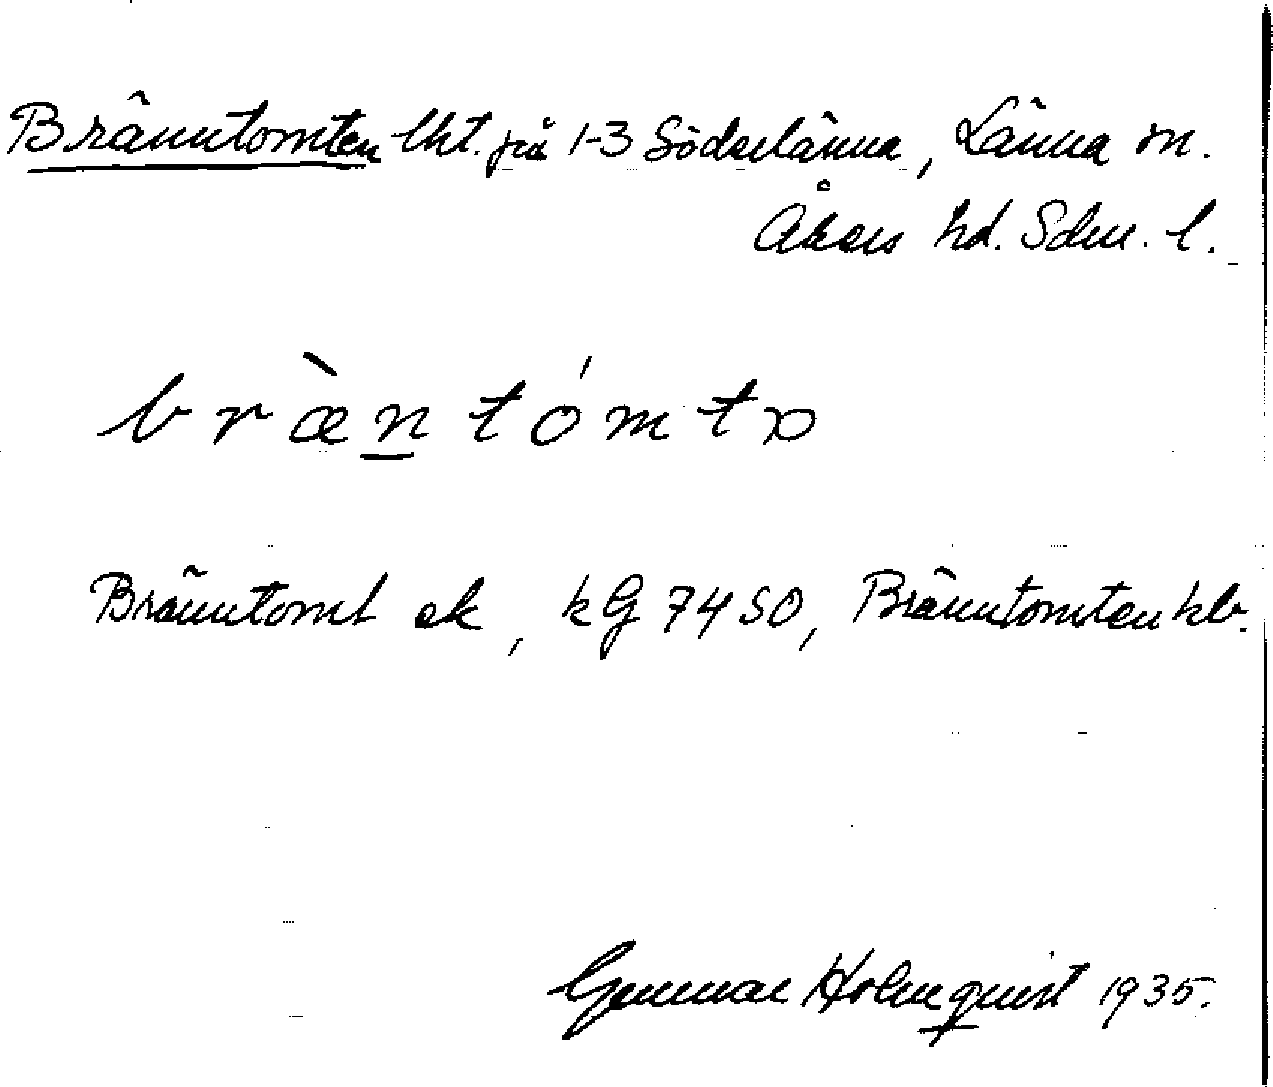 Bränntomten lht. på 1-3 Söderlänna, Länna sn.
Åkers hd. Sdm. l.
bræ̀ntómtɒ
Bränntomt ek, kG 7450, Bränntomten hb.
Gunnar Holmquist 1935.